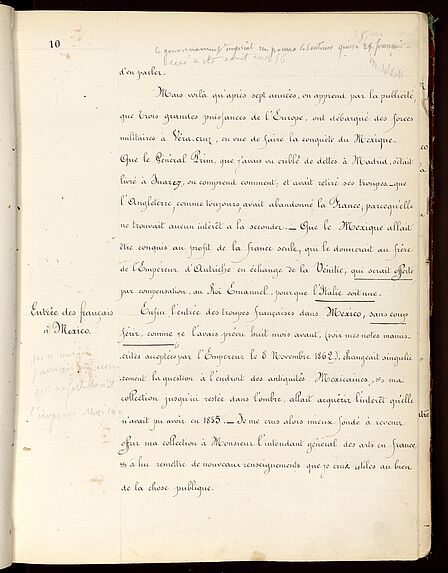 10
le gouvernement impérial
d'en parler.
Mais voilà qu'après sept années, on apprend par la publicité,
que trois grandes puissances de l'Europe, ont débarqué des forces
militaires à Véra-cruz, en vue de faire la conquête du Mexique.
Que le Général Prim, que j'avais vu criblé de dettes à Madrid, s'était
livré à Juarez, on comprend comment, et avait retiré ses troupes_que
l'Angleterre, comme toujours, avait abandonné la France, parcequ'elle
ne trouvait aucun intérêt à la seconder._ Que le Mexique allait
être conquis au profit de la france seule, qui le donnerait au frère
de l'Empereur d'Autriche en échange de la Vénitie, qui serait offerte
par compensation, au Roi Emanuel, pourque l'Italie soit une.
Entrée des français
à Mexico.
Enfin l'entrée des troupes françaises dans Mexico, sans coup
férir, comme je l'avais prévu huit mois avant, (voir mes notes manus-
crites acceptées par l'Empereur le 8 Novembre 1862). changeait singuliè
rement la question à l'endroit des antiquités Mexicaines, et ma
collection jusqu'ici restée dans l'ombre, allait acquérir l'intérêt qu'elle
n'avait pu avoir en 1855._ Je me crus alors mieux fondé à revenir
offrir ma collection à Monsieur l'intendant général des arts en france,
et à lui remettre de nouveaux renseignements que je crus utiles au bien
de la chose publique.